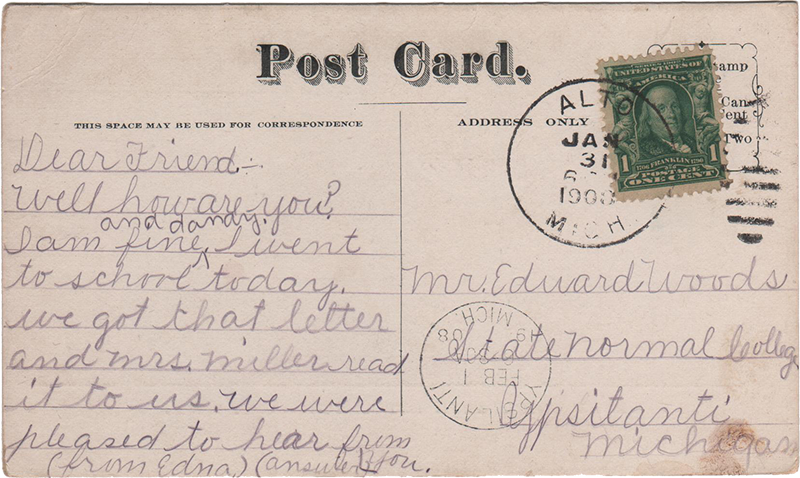 Post Card.
THIS SPACE MAY BE USED FOR CORRESPONDENCE
ADDRESS ONLY
Dear Friend:-
Well how are you?
and dandy.
I am fine ^ I went
to school today.
we got that letter
and mrs. miller read
it to us. we were
pleased to hear from
(from Edna) (answer) you.
SERIES 1902
UNITED STATES OF
AMERICA
1 1706 FRANKLIN 1790 1
POSTAGE
ONE CENT
Stamp
Two
ALTO
JAN
31
1908
MICH.
Mr. Edward Woods
State normal College
Ypsilanti
Michigan
YPSILANTI
FEB 1
08
MICH.